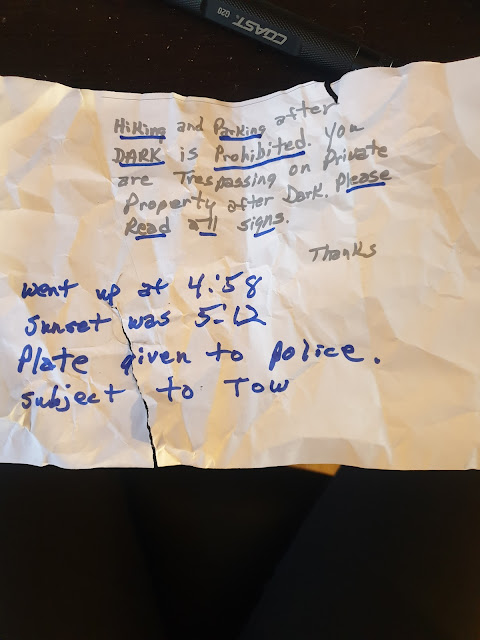 COAST. G20
Hiking and Parking after
DARK is Prohibited. You
are Trespassing on Private
Property after Dark. Please
Read all signs.
Thanks
went up at 4:58
sunset was 5:12
Plate given to police.
subject to Tow